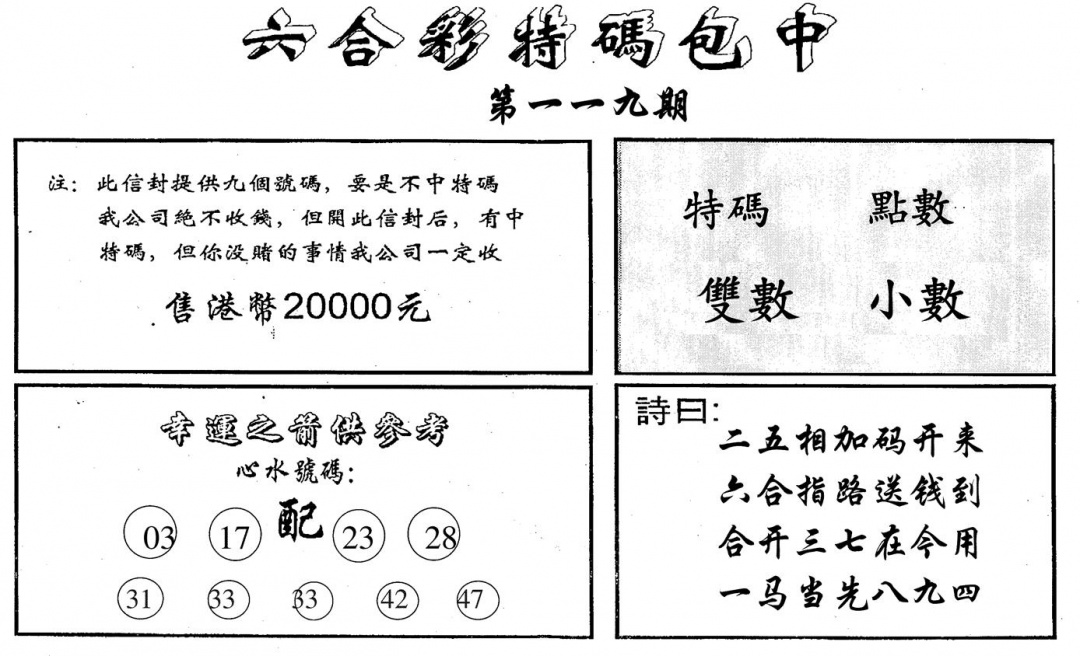 六合彩特碼包中
第一一九期
注：此信封提供九個號碼，要是不中特碼
我公司絶不收錢，但開此信封后，有中
特碼，但你没賭的事情我公司一定收
售港幣20000元
特碼 點數
雙數 小數
幸運之箭供參考
心水號碼：
配
03 17 23 28
31 33 33 42 47
詩曰：
二五相加码开来
六合指路送钱到
合开三七在今用
一马当先八九四